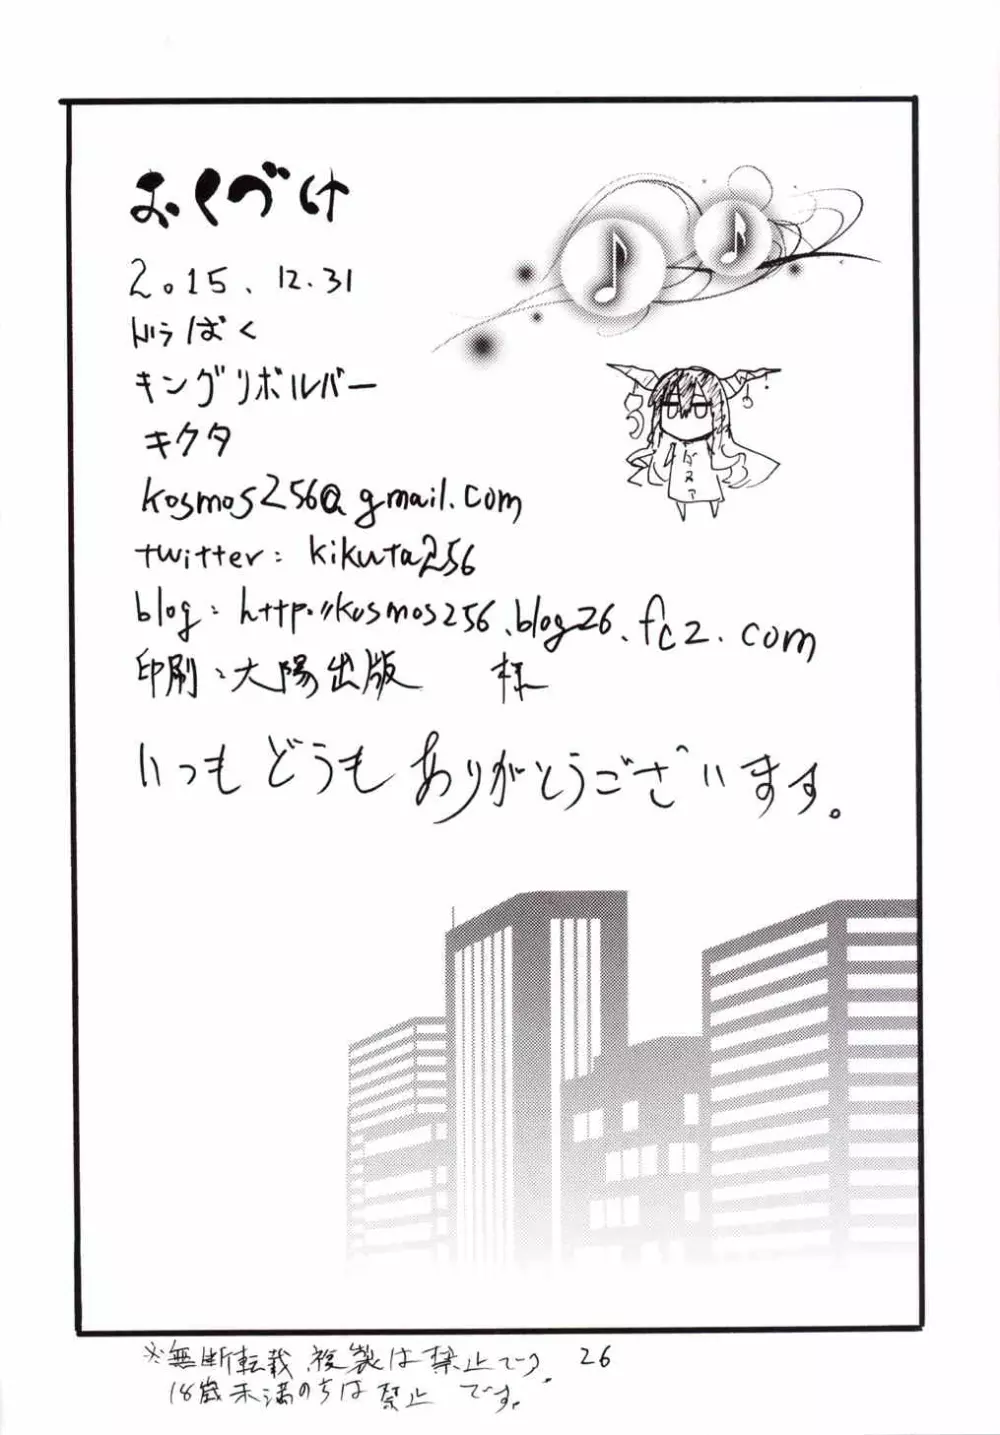 おくづけ
2015.12.31
ドラばく
キングリボルバー
キクタ
kosmos256@gmail.com
twitter: kikuta256
blog: http://kosmos256.blog26.fc2.com
印刷:大陽出版 様
いつもどうもありがとうございます。
※無断転載、複製は禁止です。
18歳未満のちは禁止です。
26